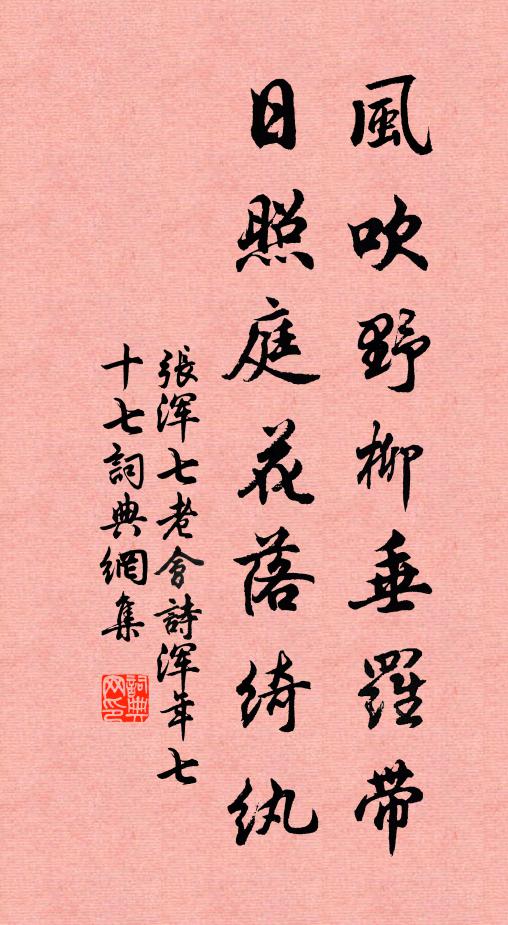 風吹野柳垂羅帶
日照庭花落綺紈
張渾七老會詩渾年七
十七詞典網集
詞典網印